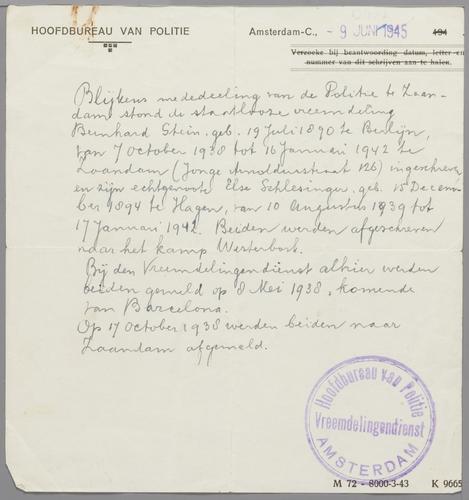 HOOFDBUREAU VAN POLITIE
Amsterdam-C., - 9 JUNI 1945 194
Verzoeke bij beantwoording datum, letter en
nummer van dit schrijven aan te halen.
Blijkens mededeeling van de Politie te Zaan-
dam stond de staatlooze vreemdeling
Bernhard Stein, geb. 19 Juli 1890 te Berlijn,
van 7 October 1938 tot 16 Januari 1942 te
Zaandam (Jonge Arnoldusstraat 126) ingeschreven
en zijn echtgenoote Else Schlesinger, geb. 15 Decem-
ber 1894 te Hagen, van 10 Augustus 1939 tot
17 Januari 1942. Beiden werden afgeschreven
naar het kamp Westerbork.
Bij den Vreemdelingendienst alhier werden
beiden gemeld op 8 Mei 1938, komende
van Barcelona.
Op 17 October 1938 werden beiden naar
Zaandam afgemeld.
Hoofdbureau van Politie
Vreemdelingendienst
AMSTERDAM
M 72 - 8000-3-43 K 9665